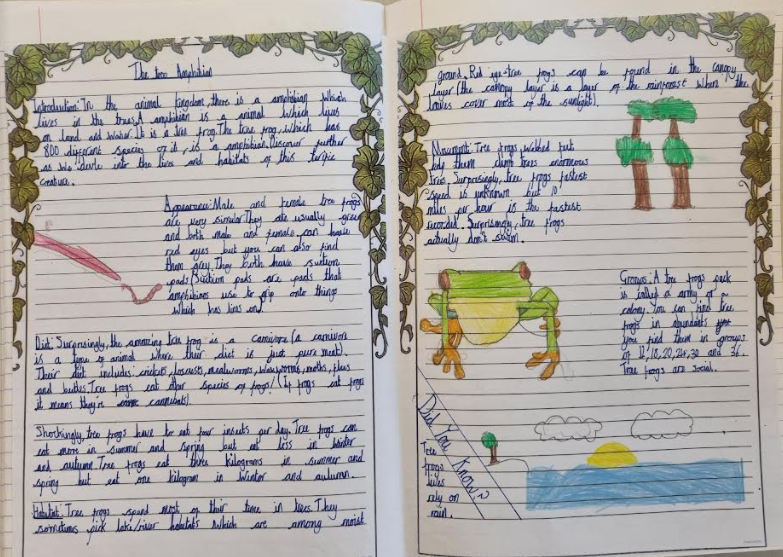 The tree Amphibian
Introduction: In the animal kingdom, there is a amphibian which
lives in the trees. A amphibian is a animal which lives
on land and water. It is a tree frog. The tree frog, which has
800 different species of it, is a amphibian. Discover further
as we delve into the lives and habitats of this
creature.
Appearance: Male and female tree frogs
are very similar. They are usually green
and both male and female can have
red eyes but you can also find
them grey. They both have suction
pads (Suction pads are pads that
amphibians use to grip onto things
which has lins on.
Diet: Surprisingly, the amazing tree frog is a carnivore (a carnivore
is a type of animal where their diet is just pure meat).
Their diet includes: crickets, locusts, mealworms, waxworms, moths, flies
and beetles. Tree frogs eat other species of frogs! (If frogs eat frogs
it means they're cannibals).
Shockingly, tree frogs have to eat four insects per day. Tree frogs can
eat more in summer and spring but eat less in winter
and autumn. Tree frogs eat three kilograms in summer and
spring but eat one kilogram in winter and autumn.
Habitat: Tree frogs spend most of their time in trees. They
sometimes pick lake/river habitats which are among moist
ground. Red eye-tree frogs can be found in the canopy
layer (the canopy layer is a layer of the rainforest where the
leaves cover most of the sunlight).
Movement: Tree frogs, webbed feet
help them climb trees enormous
trees. Surprisingly, tree frogs fastest
speed is unknown but 10
miles per hour is the fastest
recorded. Surprisingly, tree frogs
actually don't swim.
Groups: A tree frogs pack
is called a army or a
colony. You can find tree
frogs in abundants
you find them in groups
of 12, 18, 20, 24, 30 and 36.
Tree frogs are social.
Did You Know?
Tree
frogs
lives
rely on
rain.